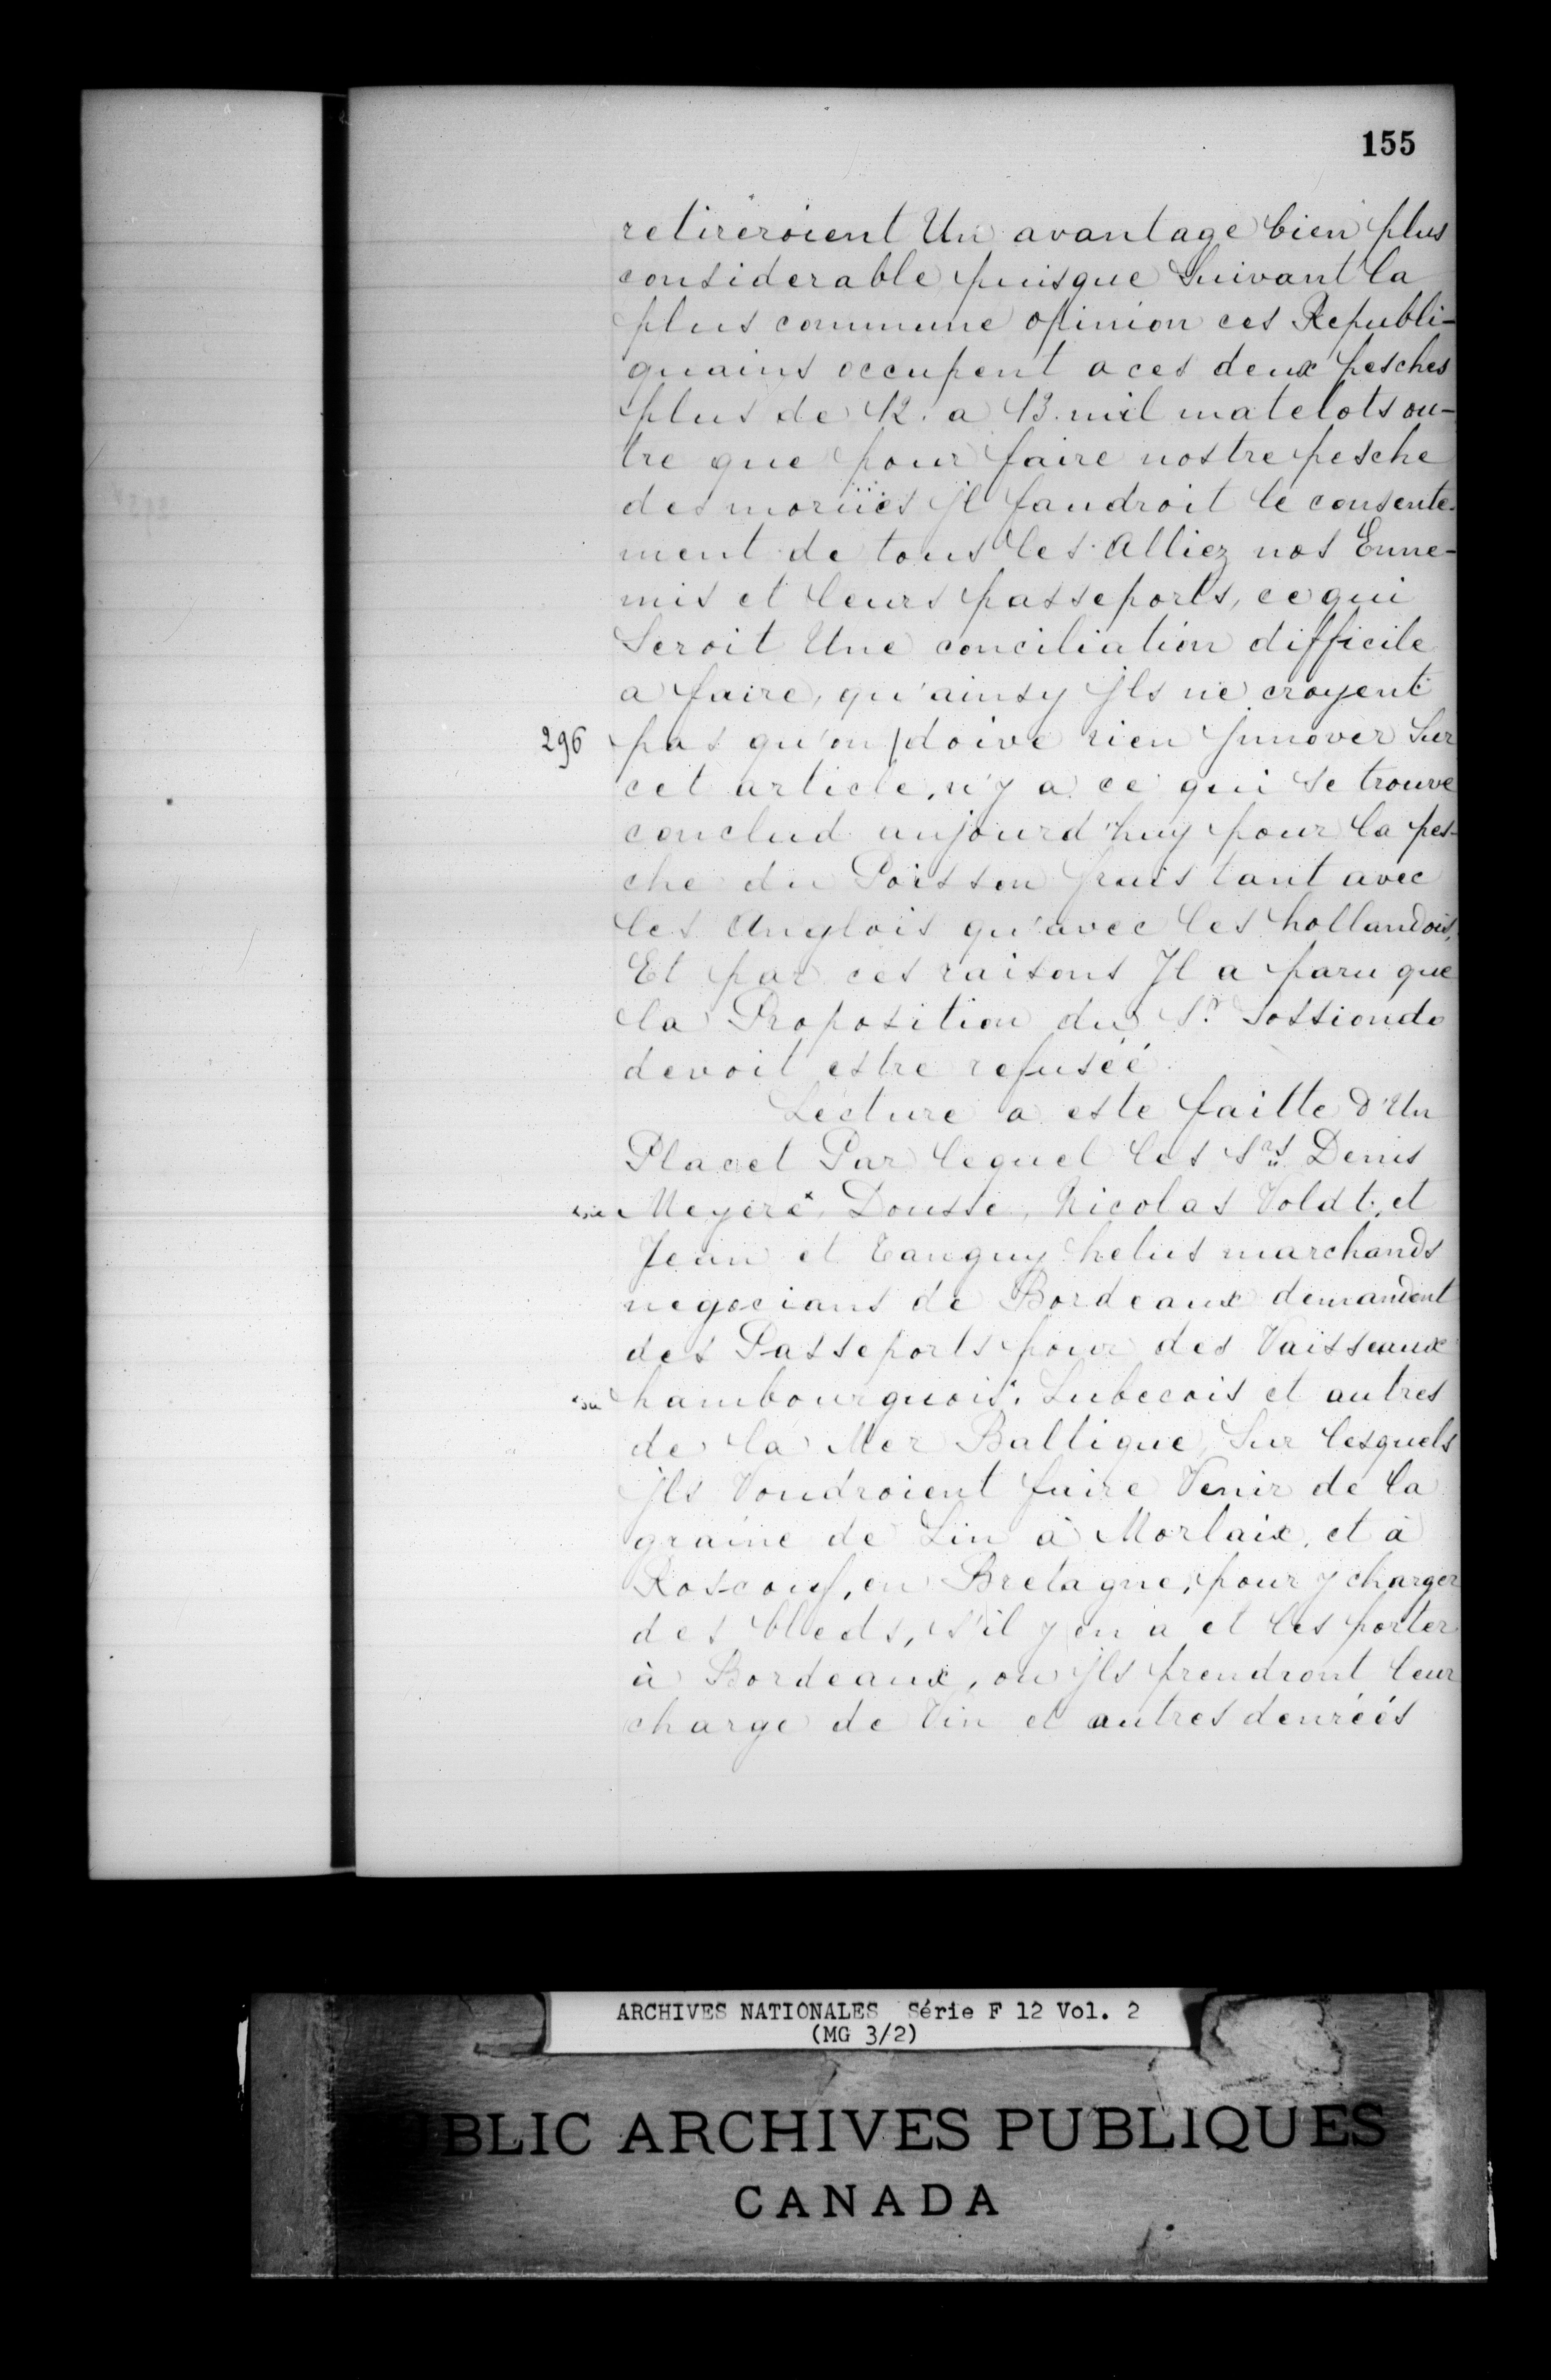 155
retireroient Un avantage bien plus
considerable puisque Suivant la
plus commune opinion ces Republi-
quains occupent a ces deux pesches
plus de 12. a 13. mil matelots ou-
tre que pour faire nostre pesche
des moruïes Jl faudroit le consente-
ment de tous les Alliez nos Enne-
mis et leurs passeports, ce qui
Seroit Une conciliation difficile
a faire, qu'ainsy Jls ne croyent
296 pas qu'on / doive rien Jnnover Sur
cet article, n'y a ce qui se trouve
conclud aujourd'huy pour la pes-
che du Poisson frais tant avec
les Anglois qu'avec les hollandois,
Et par ces raisons Jl a paru que
la Proposition du Sr. Sossiondo
devoit estre refuséé.
Lecture a este faitte d'Un
Placet Par lequel les Srs Denis
Meyere, Dousse, Nicolas Voldt, et
Jean et Tanguy helus marchands
negocians de Bordeaux demandent
des Passeports pour des Vaisseaux
hambourguois, Lubecois et autres
de la Mer Baltique Sur lesquels
Jls Voudroient faire Venir de la
graine de Lin à Morlaix, et à
Roscouf, en Bretagne, pour y charger
des bleds, s'il y en a et les porter
à Bordeaux, ou Jls prendront leur
charge de Vin et autres denréés
ARCHIVES NATIONALES Série F 12 Vol. 2
(MG 3/2)
BLIC ARCHIVES PUBLIQUES
CANADA